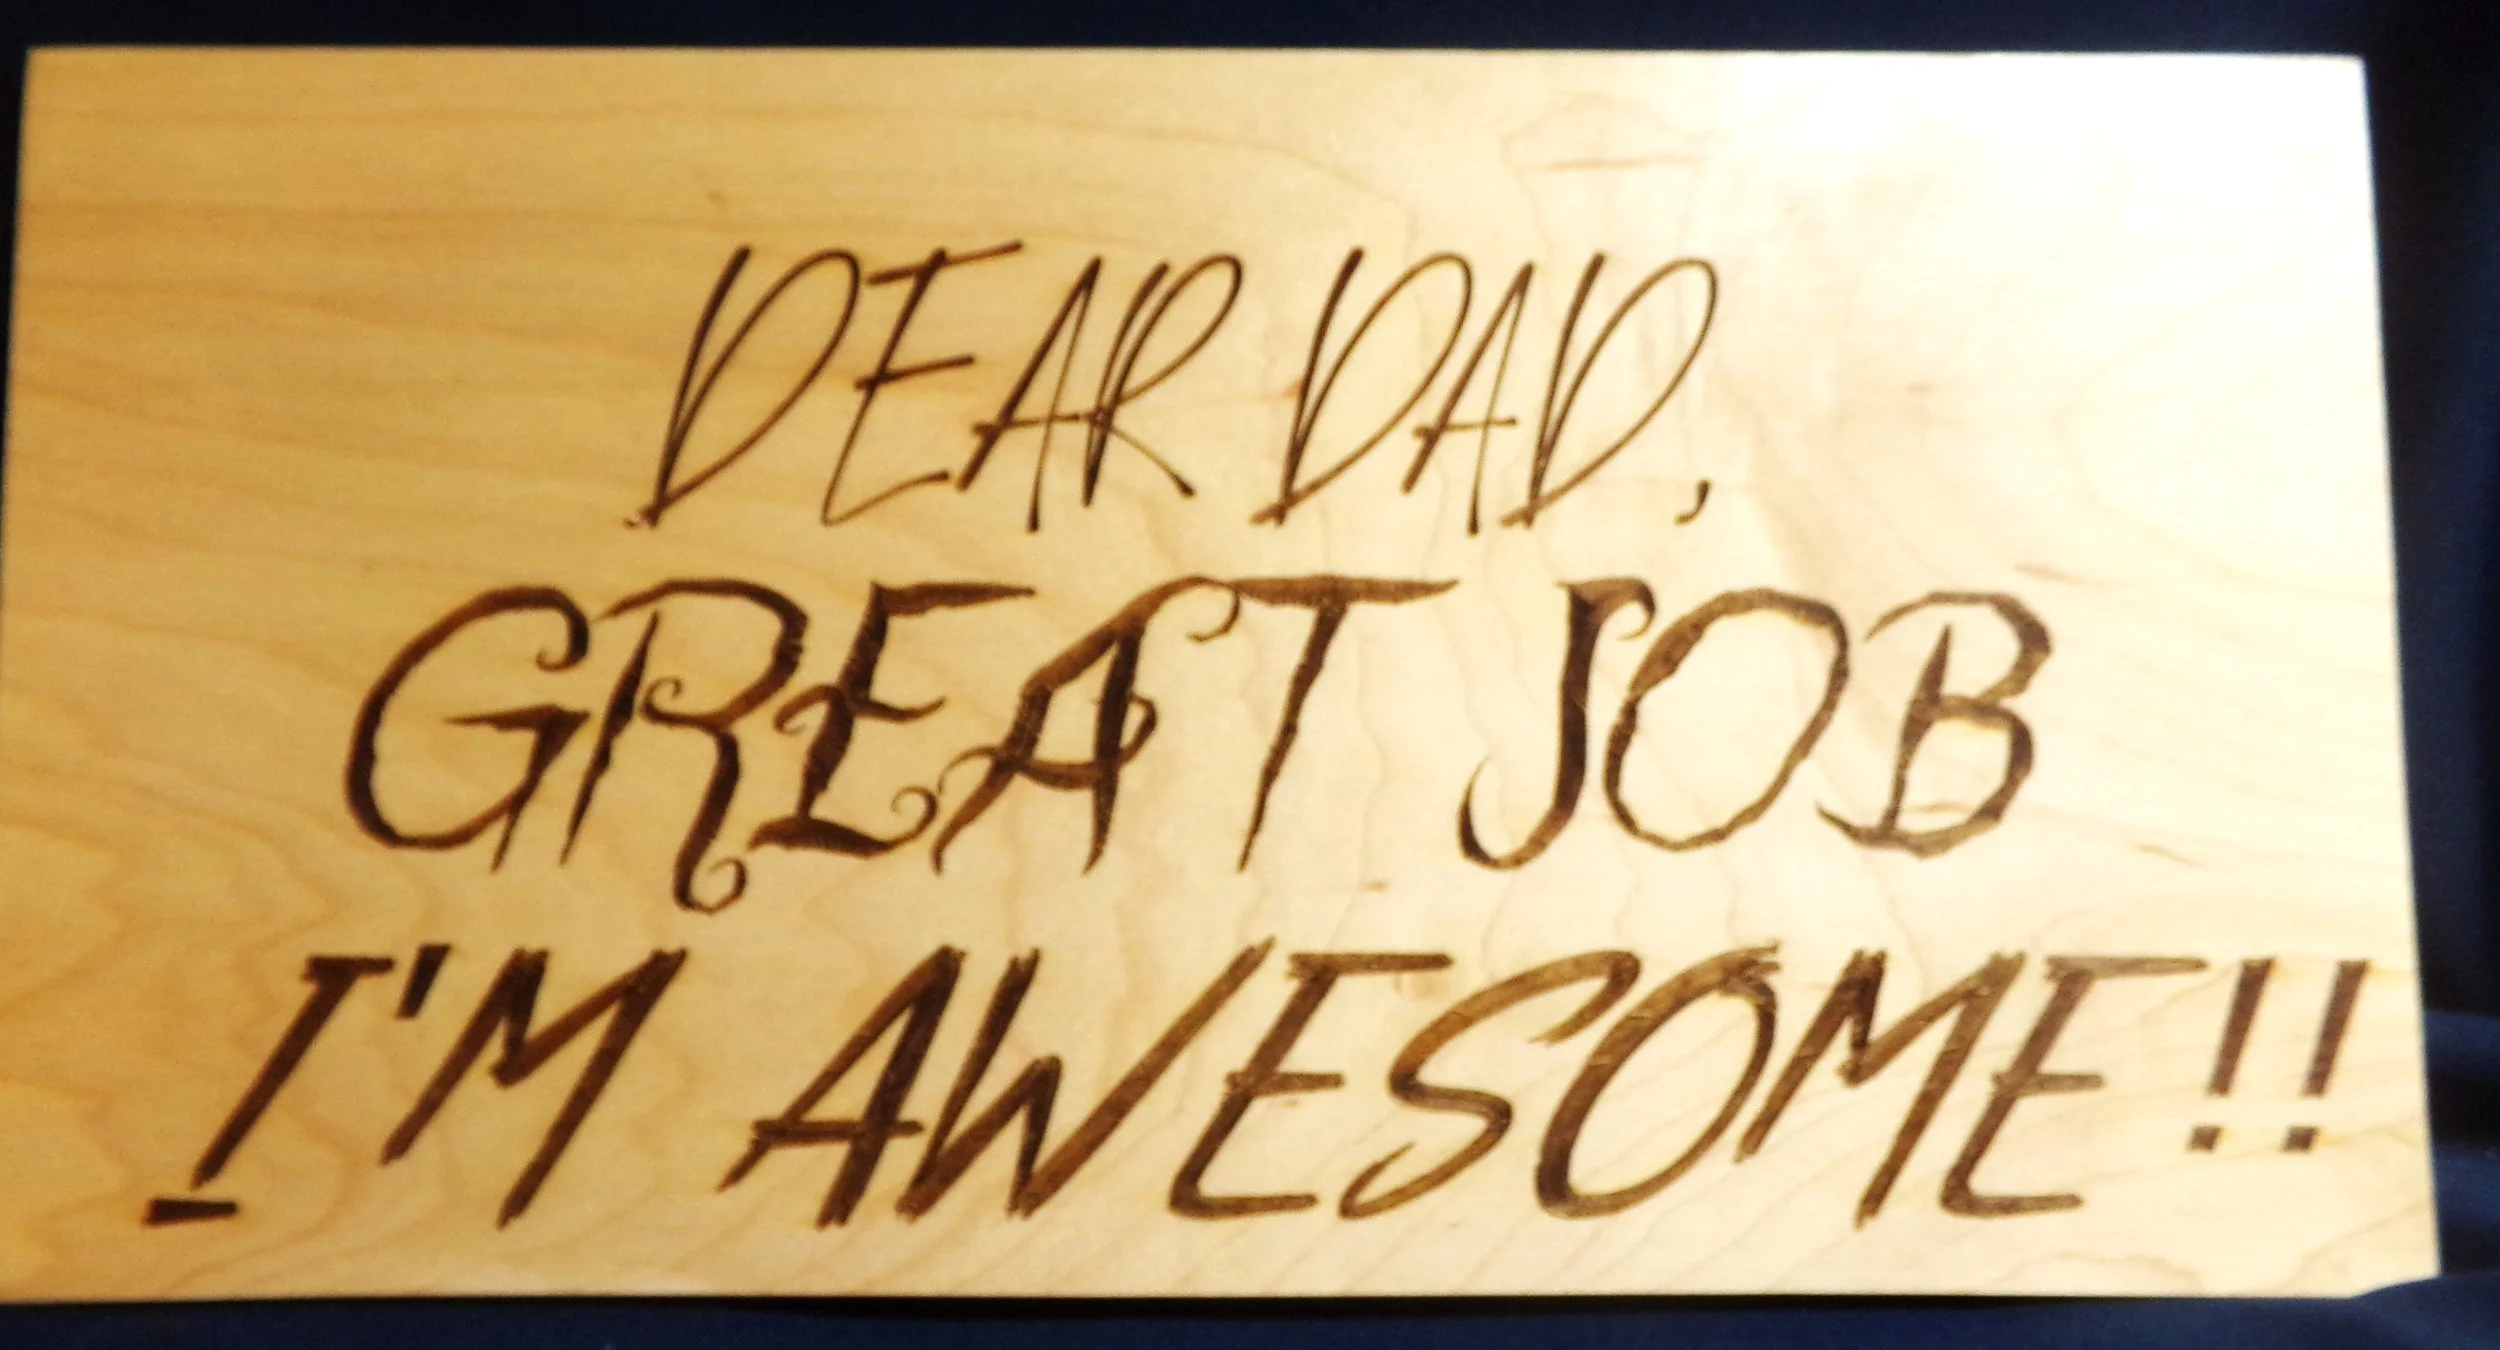 DEAR DAD,
GREAT JOB
I'M AWESOME!!